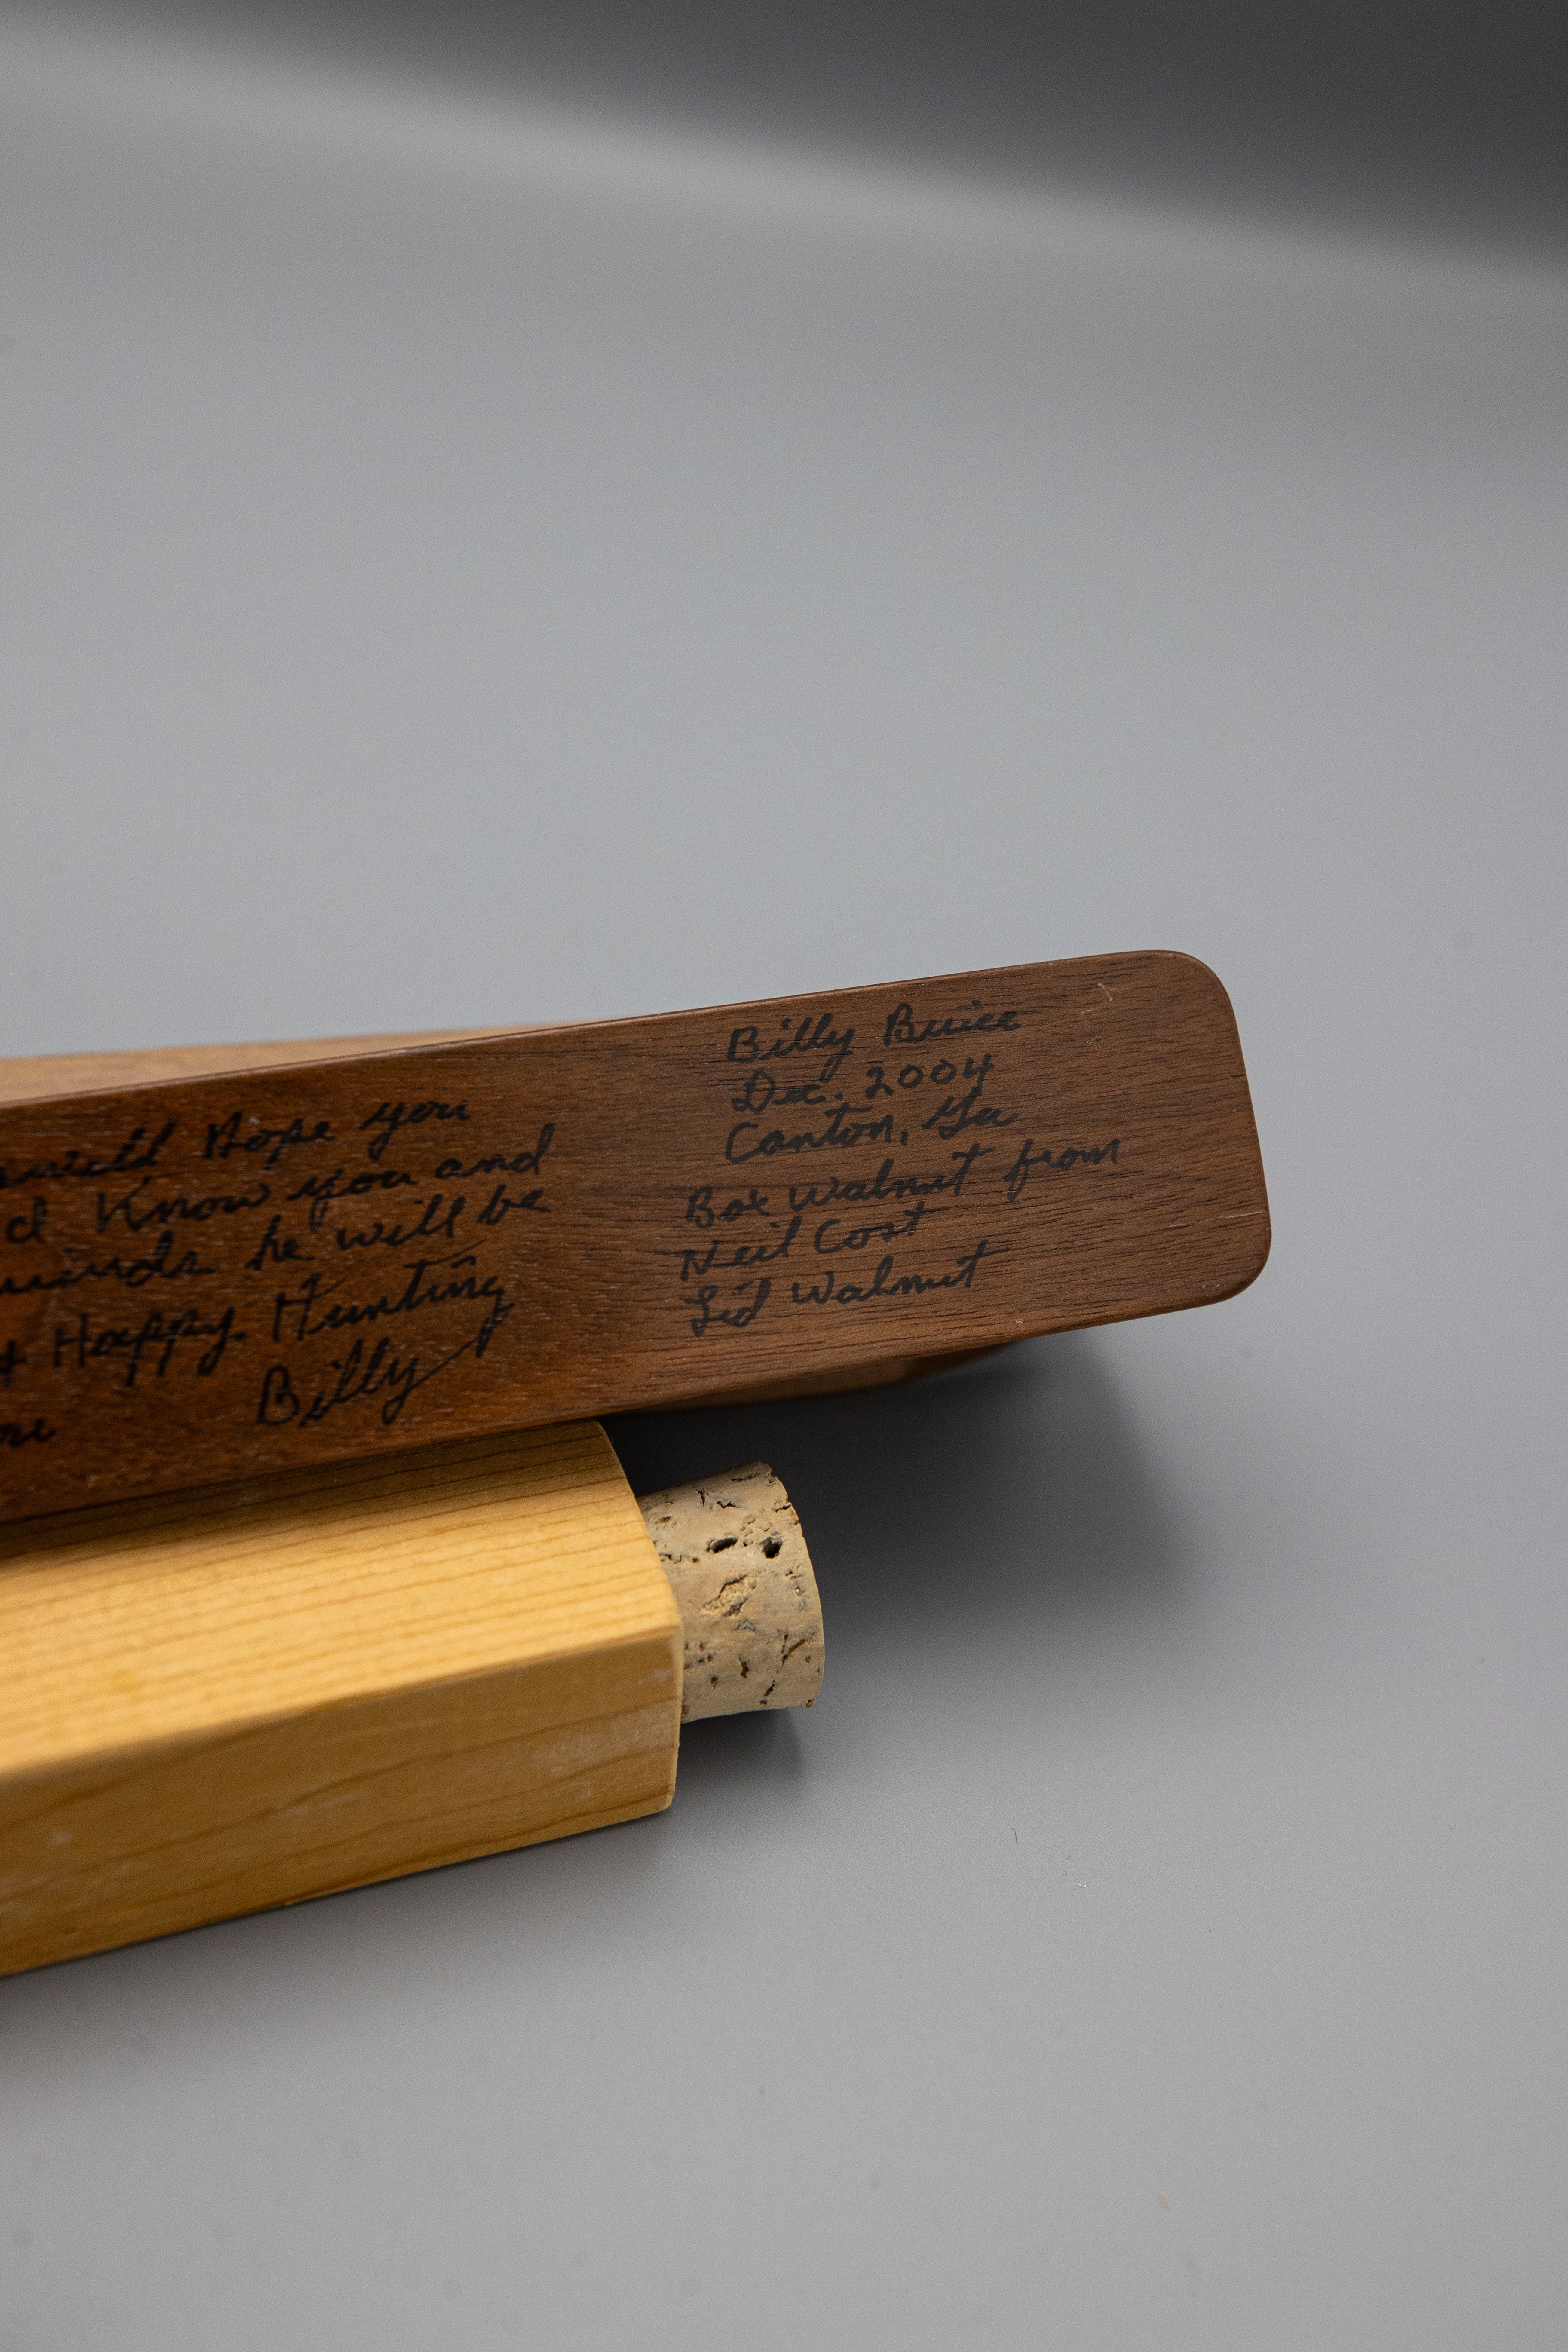 Hope you
Know you and
he will be
Happy Hunting
Billy
Billy Buice
Dec. 2004
Canton, Ga
Box Walnut from
Neil Cost
Lid Walnut